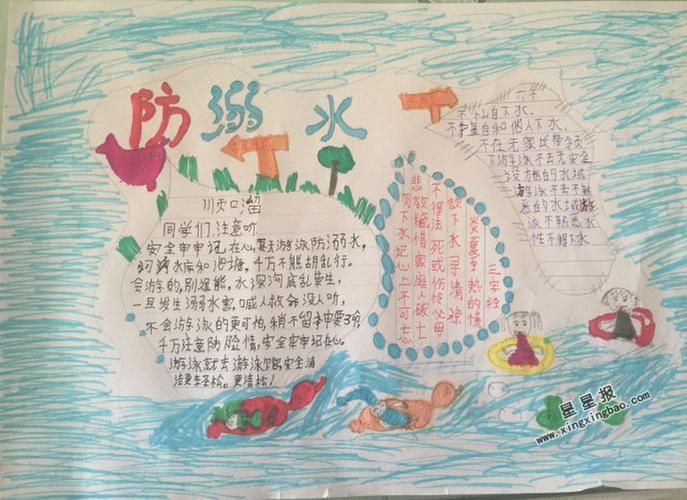 防溺水
顺口溜
同学们,注意听
安全牢牢记在心,夏天游泳防溺水,
水库和池塘,千万不能胡乱行。
会游的,别逞能,水深河底乱杂生,
一旦发生溺水害,喊人救命没人听,
不会游泳的更可怕,稍不留神要了命,
千万注意防险情,安全牢牢记在心。
游泳就去游泳馆安全清
洁更轻松。更清松!
三字经
炎夏至 热的慌
欲下水 寻清凉
不得法 死或伤 怪父母
悲欲绝 惜家庭 人破亡
勿下水 记心上 不可忘
六不
不私自下水,
不擅自和他人下水,
不在无家长带领
下游泳 不去无安全
设施的水域
游泳 不去不熟
悉的水域游
泳 不熟悉水
性不得下水
星星报
www.xingxingbao.com